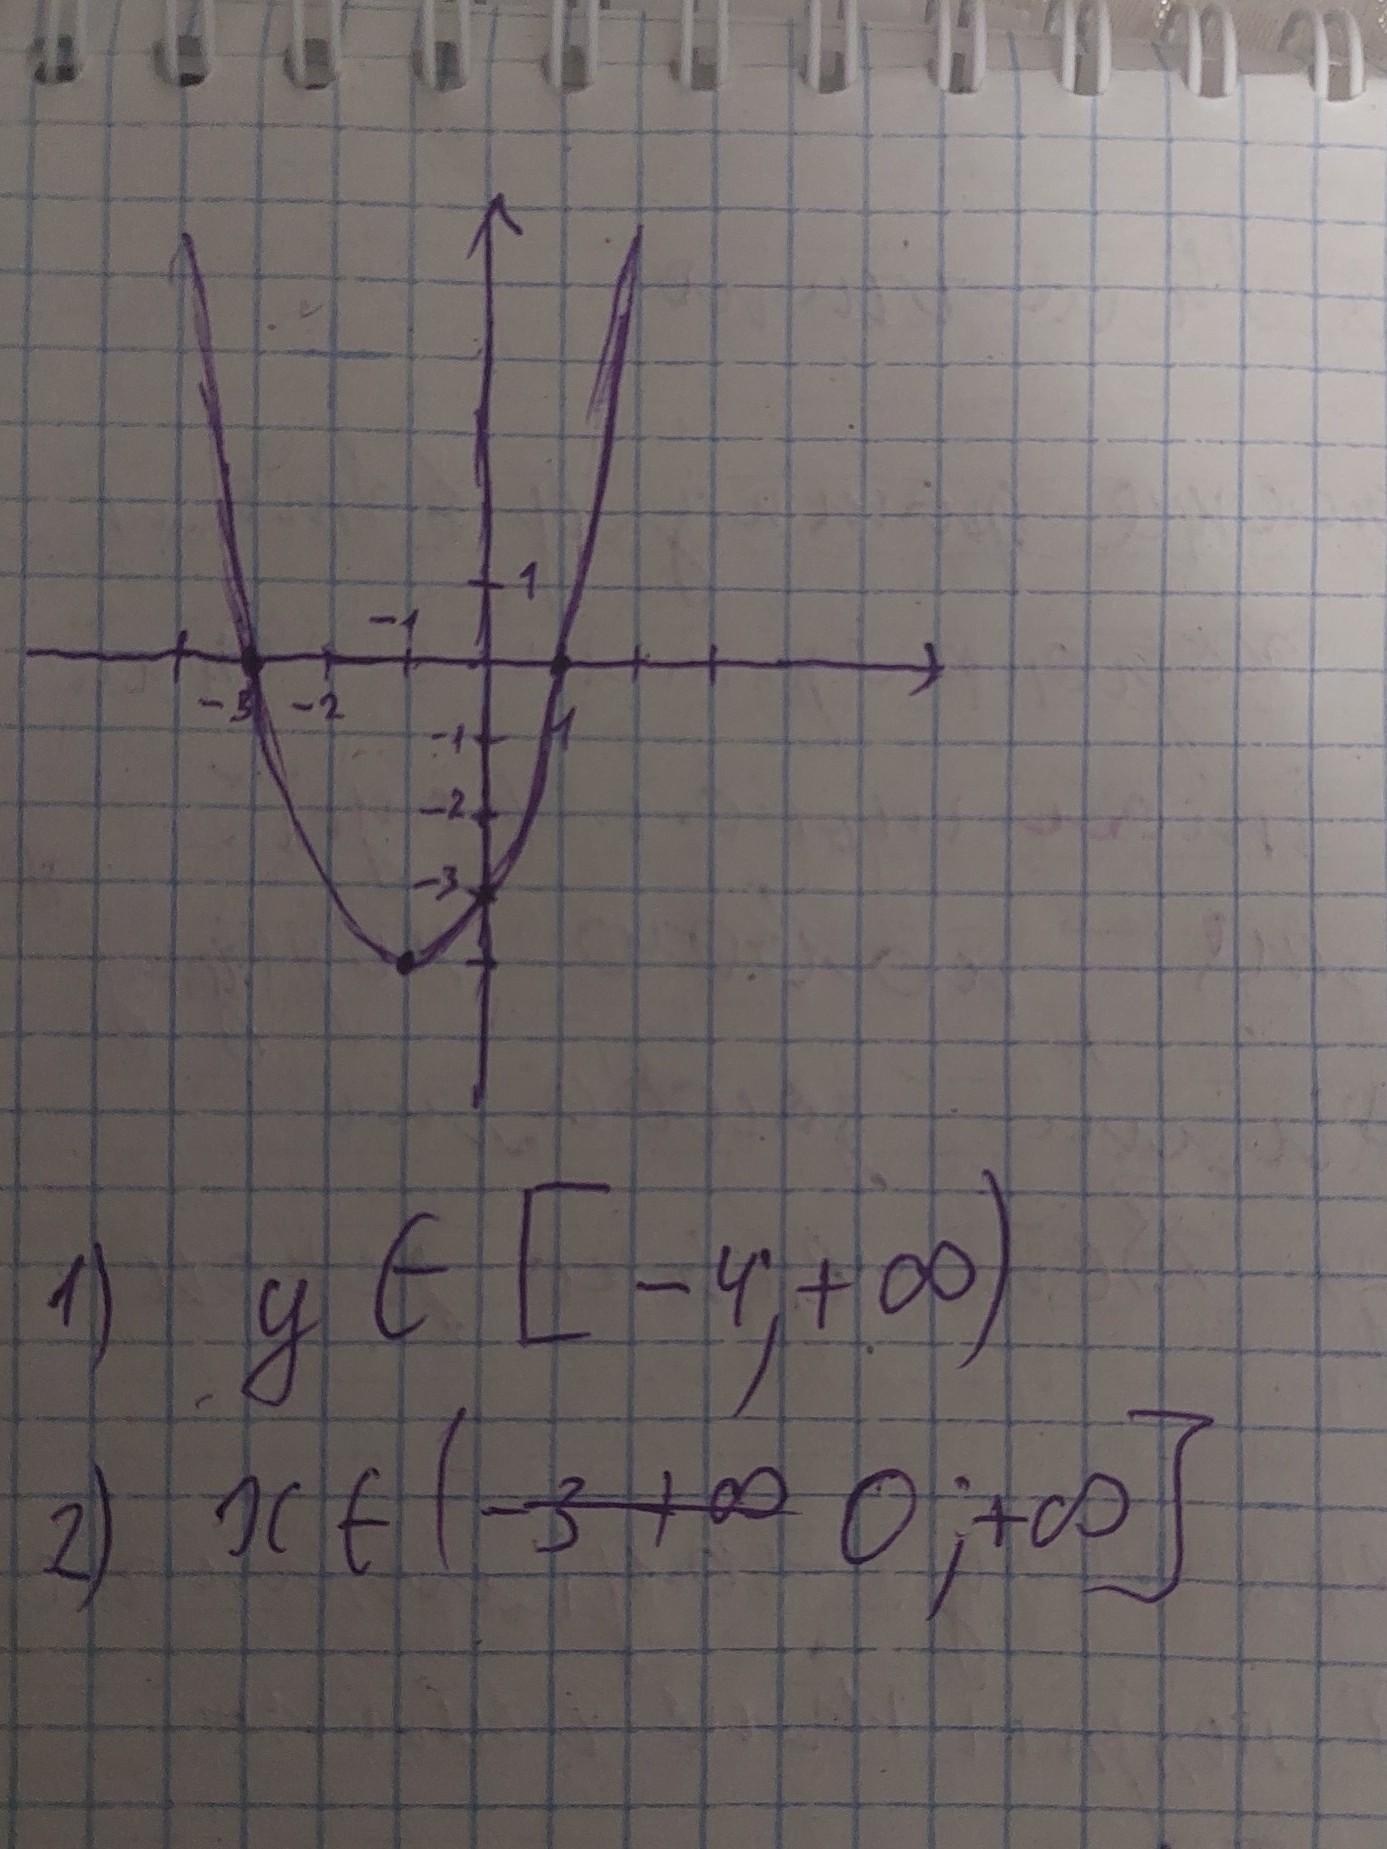 1
-1
-3 -2
1
-1
-2
-3
1) y ∈ [-4; +∞)
2) x ∈ (-3 +∞ 0; +∞]